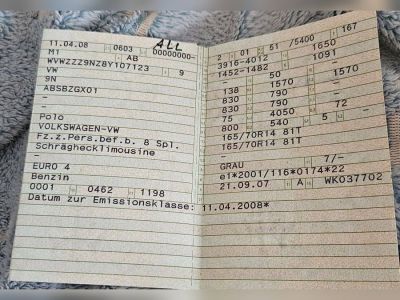 ALL
11.04.08 0603 00000000-
M1 AB
WVWZZZ9NZ8Y107123 9
VW
9N
ABSBZGX01
–
–
Polo
VOLKSWAGEN-VW
Fz.z.Pers.bef.b. 8 Spl.
Schräghecklimousine
–
EURO 4
Benzin
0001 0462 1198
Datum zur Emissionsklasse: 11.04.2008*
2 01 51 /5400 167
3916-4012 1650
1452-1482 1091
– 50 –
138 1570 –
830 790 –
830 790 –
75 4050 72 –
800 540 5
165/70R14 81T
165/70R14 81T
–
GRAU 7/–
e1*2001/116*0174*22
21.09.07 A WK037702